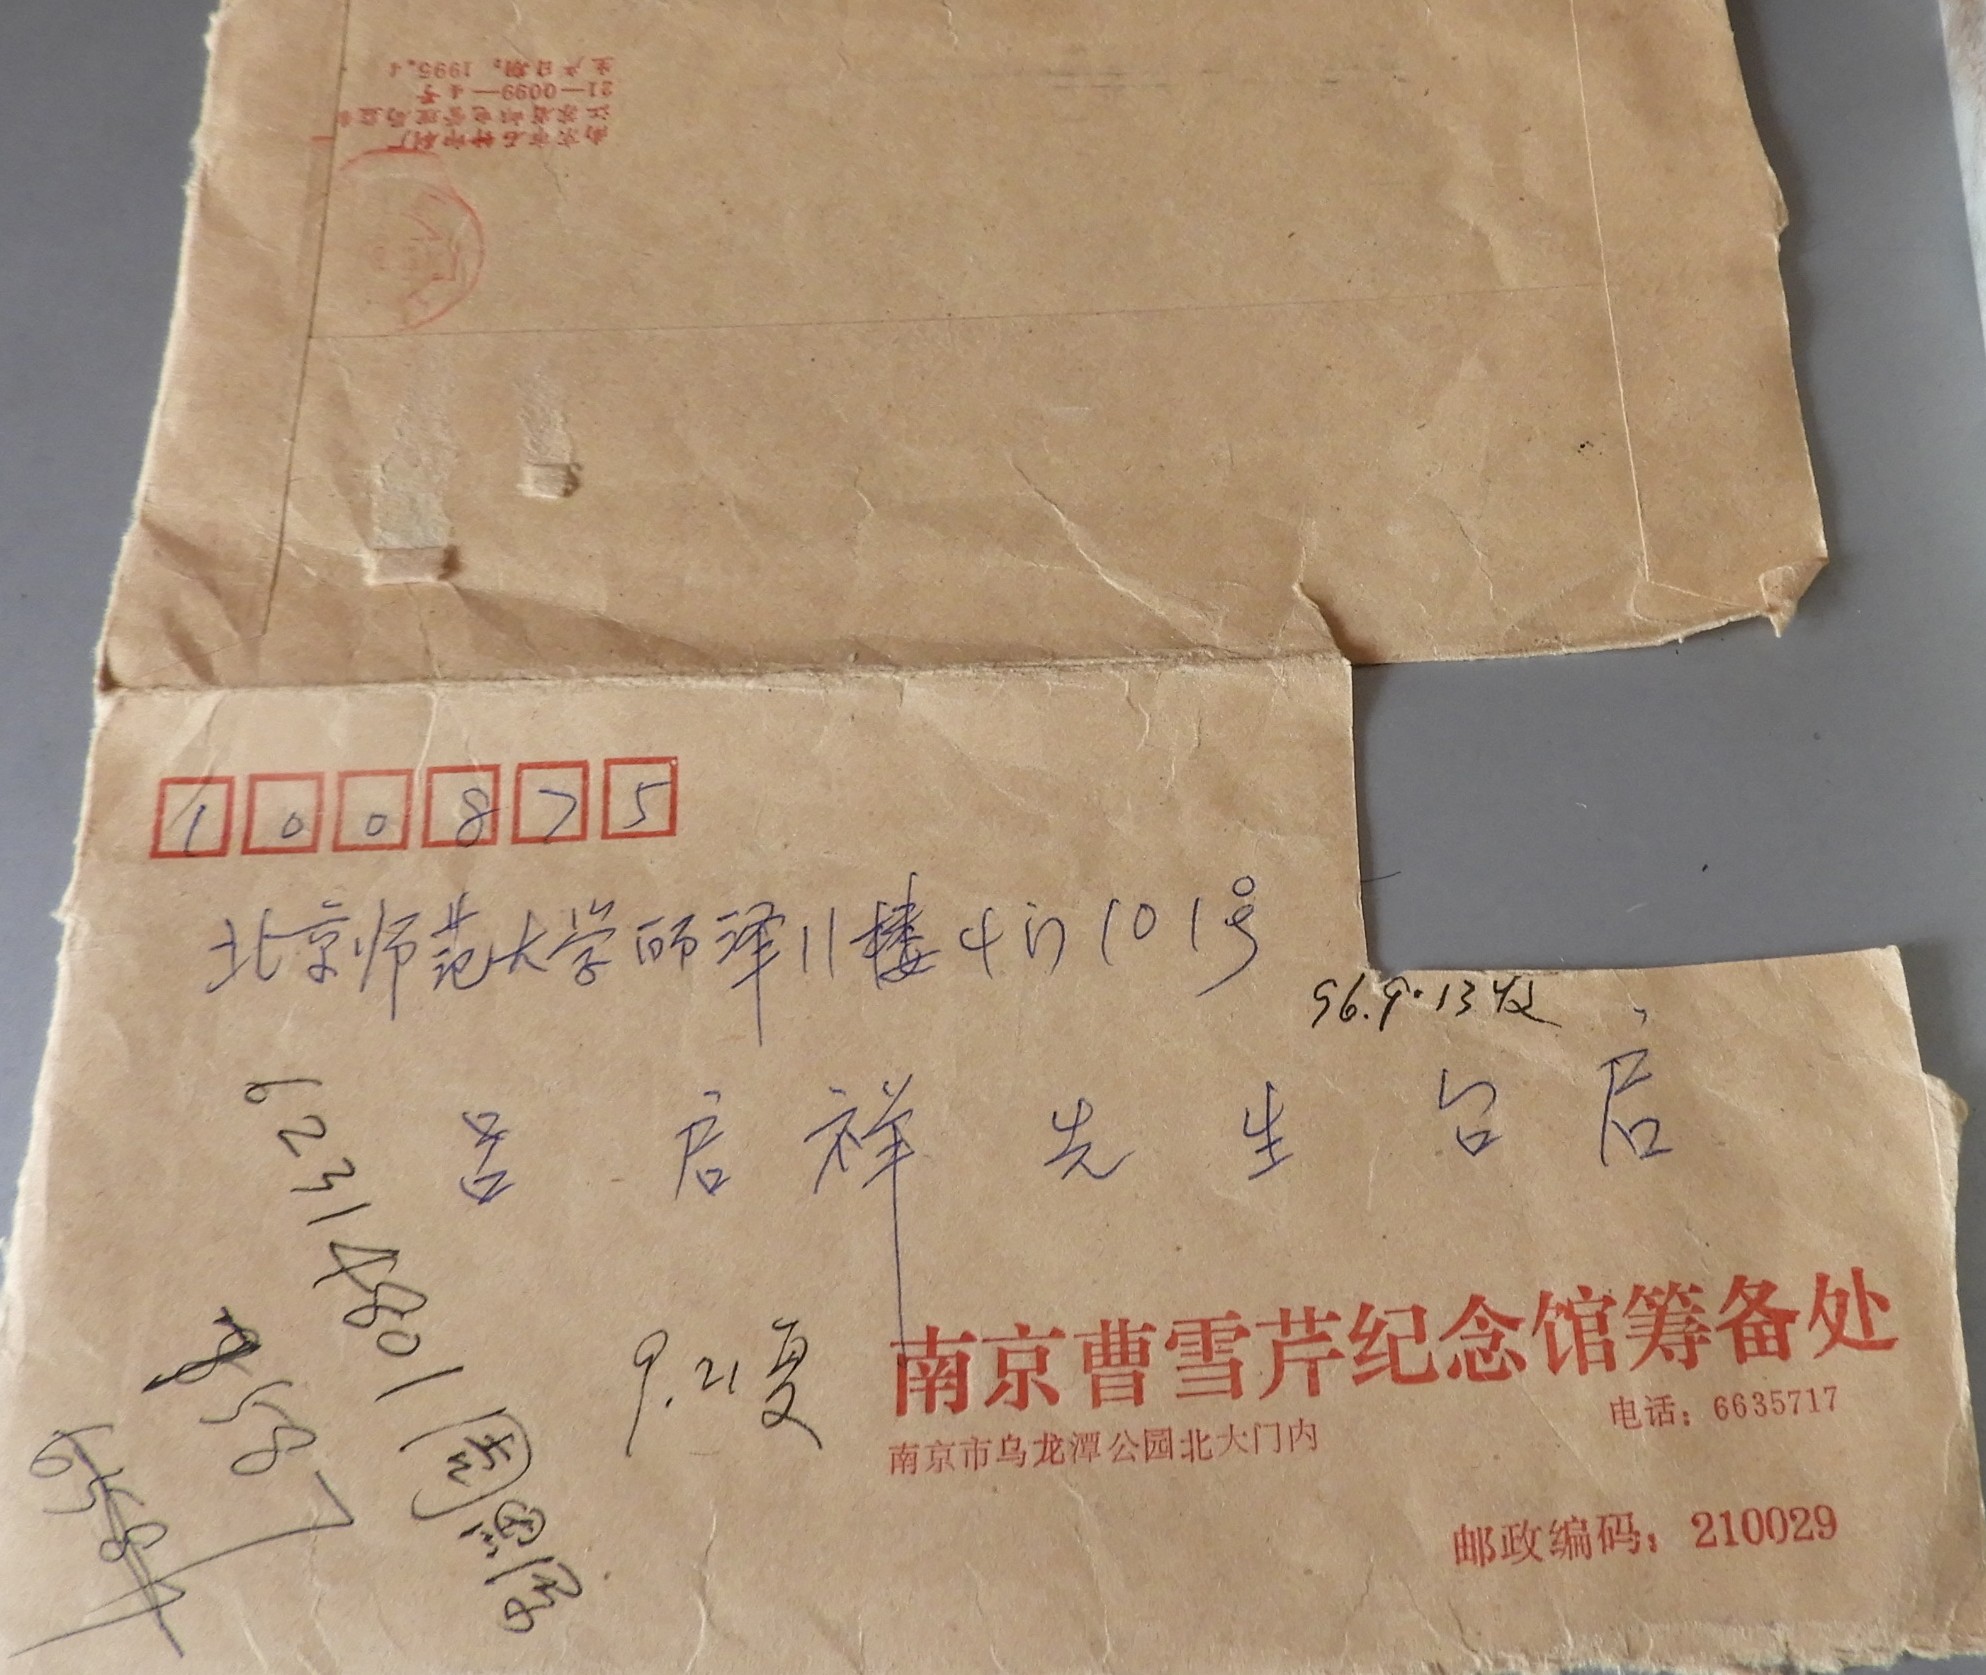 南京市石钟印刷厂
江苏省邮电管理局监制
21—0099—4号
生产日期：1995.4
100875
北京师范大学丽泽11楼4门101号
96.9.13发
吕启祥先生台启
62314801
9.21复
南京曹雪芹纪念馆筹备处
电话：6635717
南京市乌龙潭公园北大门内
邮政编码：210029